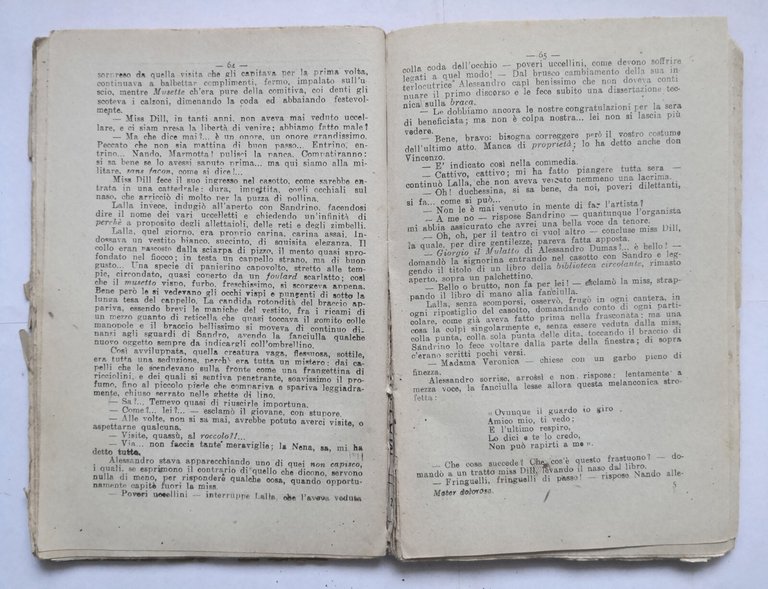 — 64 —
sorpreso da quella visita che gli capitava per la prima volta,
continuava a balbettar complimenti, fermo, impalato sull'u
scio, mentre Musette ch'era pure della comitiva, coi denti gli
scoteva i calzoni, dimenando la coda ed abbaiando festevol-
mente.
— Miss Dill, in tanti anni, non aveva mai veduto uccel-
lare, e ci siam presa la libertà di venire; abbiamo fatto male!
— Ma che dice mai?... è un onore, un onore grandissimo.
Peccato che non sia mattina di buon passo... Entrino, en-
trino... Nando, Marmotta! pulisci la panca. Compatiranno:
si sa bene se lo avessi saputo prima... ma qui siamo alla mi-
litare, sans facon, come si dice!...
Miss Dill fece il suo ingresso nel casotto, come sarebbe en-
trata in una cattedrale: dura, impettita, cogli occhiali sul
naso, che arricciò di molto per la puzza di pollina.
Lalla invece, indugiò all'aperto con Sandrino, facendosi
dire il nome dei vari uccelletti e chiedendo un'infinità di
perchè a proposito degli allettaioli, delle reti e degli zimbelli.
Lalla, quel giorno, era proprio carina, carina assai. In-
dossava un vestito bianco, succinto, di squisita eleganza. Il
collo eran nascosto dalla sciarpa di pizzo, il mento quasi spro-
fondato nel fiocco; in testa un cappello strano, ma di buon
gusto... Una specie di panierino capovolto, stretto alle tem-
pie, circondato, quasi coperto da un foulard scarlatto; così
che il musetto vispo, furbo, freschissimo, si scorgeva appena.
Bene però le si vedevano gli occhi vispi e pungenti di sotto la
lunga tesa del cappello. La candida rotondità del braccio ap-
pariva, essendo brevi le maniche del vestito, fra i ricami di
un mezzo guanto di reticella che quasi toccava il gomito colle
manopole e il braccio bellissimo si moveva di continuo di-
nanzi agli sguardi di Sandro, avendo la fanciulla qualche
nuovo oggetto sempre da indicargli coll'ombrellino.
Così avviluppata, quella creatura vaga, flessuosa, sottile,
era tutta una seduzione, perchè era tutta un mistero: dai ca-
pelli che le scendevano sulla fronte come una frangettina di
ricciolini, e dei quali si sentiva penetrante, soavissimo il pro-
fumo, fino al piccolo piede che compariva e spariva leggiadra-
mente, chiuso serrato nelle ghette di lino.
— Sa!... Temevo quasi di riuscirle importuna.
— Come!... lei!... — esclamò il giovane, con stupore.
— Alle volte, non si sa mai, avrebbe potuto averci visite, o
aspettarne qualcuna.
— Visite, quassù, al roccolo?!...
— Via... non faccia tante meraviglie; la Nena, sa, mi ha
detto tutto.
Alessandro stava apparecchiando uno di quei non capisco,
i quali, se esprimono il contrario di quello che dicono, servono
nulla di meno, per rispondere qualche cosa, quando opportu-
namente capitò fuori la miss.
— Poveri uccellini — interruppe Lalla, che l'aveva veduta
— 65 —
colla coda dell'occhio — poveri uccellini, come devono soffrire
legati a quel modo! — Dal brusco cambiamento della sua in-
terlocutrice Alessandro capì benissimo che non doveva conti
nuare il primo discorso e le fece subito una dissertazione tec-
nica sulla braca.
— Le dobbiamo ancora le nostre congratulazioni per la sera
di beneficiata; ma non è colpa nostra... lei non si lascia più
vedere.
— Bene, bravo: bisogna correggere però il vostro costume
dell'ultimo atto. Manca di proprietà; lo ha detto anche don
Vincenzo.
— E' indicato così nella commedia.
— Cattivo, cattivo; mi ha fatto piangere tutta sera —
continuò Lalla, che non aveva versato nemmeno una lacrima.
— Oh! duchessina, si sa bene, da noi, poveri dilettanti,
si fa... come si può...
— Non le è mai venuto in mente di far l'artista?
— A me no — rispose Sandrino — quantunque l'organista
mi abbia assicurato che avrei una bella voce da tenore.
— Oh, oh, per il teatro ci vuol altro — concluse miss Dill,
la quale, per dire gentilezze, pareva fatta apposta.
— Giorgio il Mulatto di Alessandro Dumas!... è bello! —
domandò la signorina entrando nel casotto con Sandro e leg-
gendo il titolo di un libro della biblioteca circolante, rimasto
aperto, sopra un palchettino.
— Bello o brutto, non fa per lei! — esclamò la miss, strap-
pando il libro di mano alla fanciulla.
Lalla, senza scomporsi, osservò, frugò in ogni cantera, in
ogni ripostiglio del casotto, domandando conto di ogni parti-
colare, come già aveva fatto prima nella frasconata; ma una
cosa la colpì singolarmente e, senza essere veduta dalla miss,
colla punta, colla sola punta delle dita, toccando il braccio di
Sandrino lo fece voltare dalla parte della finestra; di sopra
c'erano scritti pochi versi.
— Madama Veronica — chiese con un garbo pieno di
finezza.
Alessandro sorrise, arrossì e non rispose: lentamente a
mezza voce, la fanciulla lesse allora questa melanconica stro-
fetta:
« Ovunque il guardo io giro
Amico mio, ti vedo;
E l'ultimo respiro,
Lo dici e te lo credo,
Non può rapirti a me ».
— Che cosa succede! Che cos'è questo frastuono! — do-
mandò a un tratto miss Dill, levando il naso dal libro.
— Fringuelli, fringuelli di passo! — rispose Nando alle-
Mater dolorosa. 5